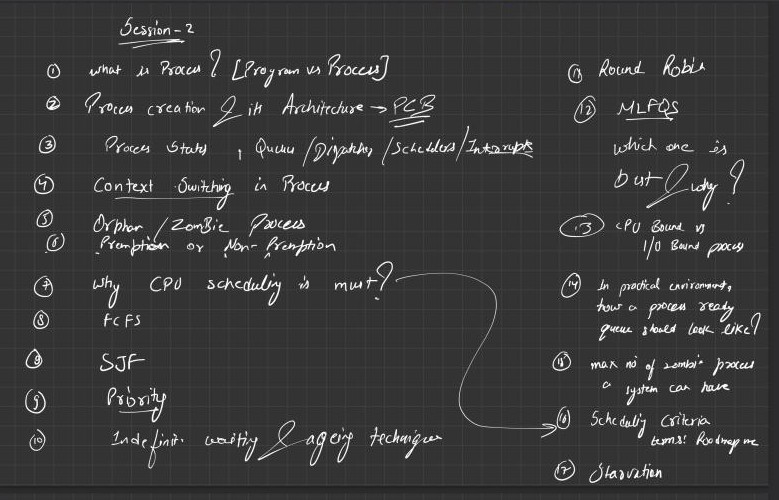 Session-2
① what is Process? [Program vs Process]
② Process creation & its Architecture → PCB
③ Process States, Queues/Dispatcher/Schedulers/Interrupts
④ Context Switching in Process
⑤ Orphan/Zombie Process
⑥ Premption or Non-Premption
⑦ Why CPU scheduling is must?
⑧ FCFS
⑧ SJF
⑨ Priority
⑩ Indefinit. waiting & ageing technique
⑪ Round Robin
⑫ MLFQS
which one is
best & why?
⑬ CPU Bound vs
I/O Bound process
⑭ In practical environment,
how a process ready
queue should look like?
⑮ max no of zombie process
a system can have
⑯ Scheduling Criteria
terms:
⑰ Starvation